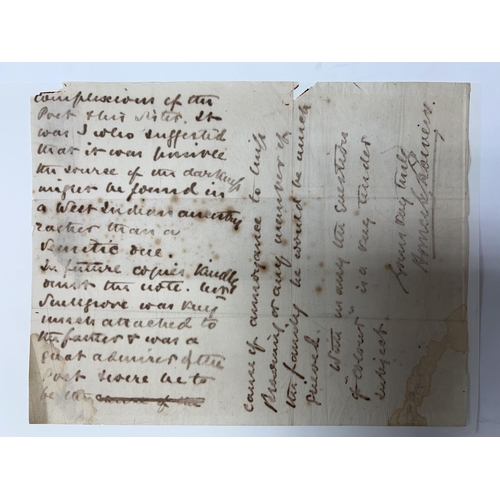 complexions of the
Poet & his Sister. It
was I who suggested
that it was possible
the source of the darkness
might be found in
a West Indian ancestry
rather than a
Semitic one.
In future copies kindly
omit the note.
was very
much attached to
the father & was a
great admirer of the
Poet were he to
be the cause of the
cause of annoyance to Miss
Browning or any member of
the family he would be much
grieved.
With us any the question
of "colour" is a very tender
subject
Yours very truly